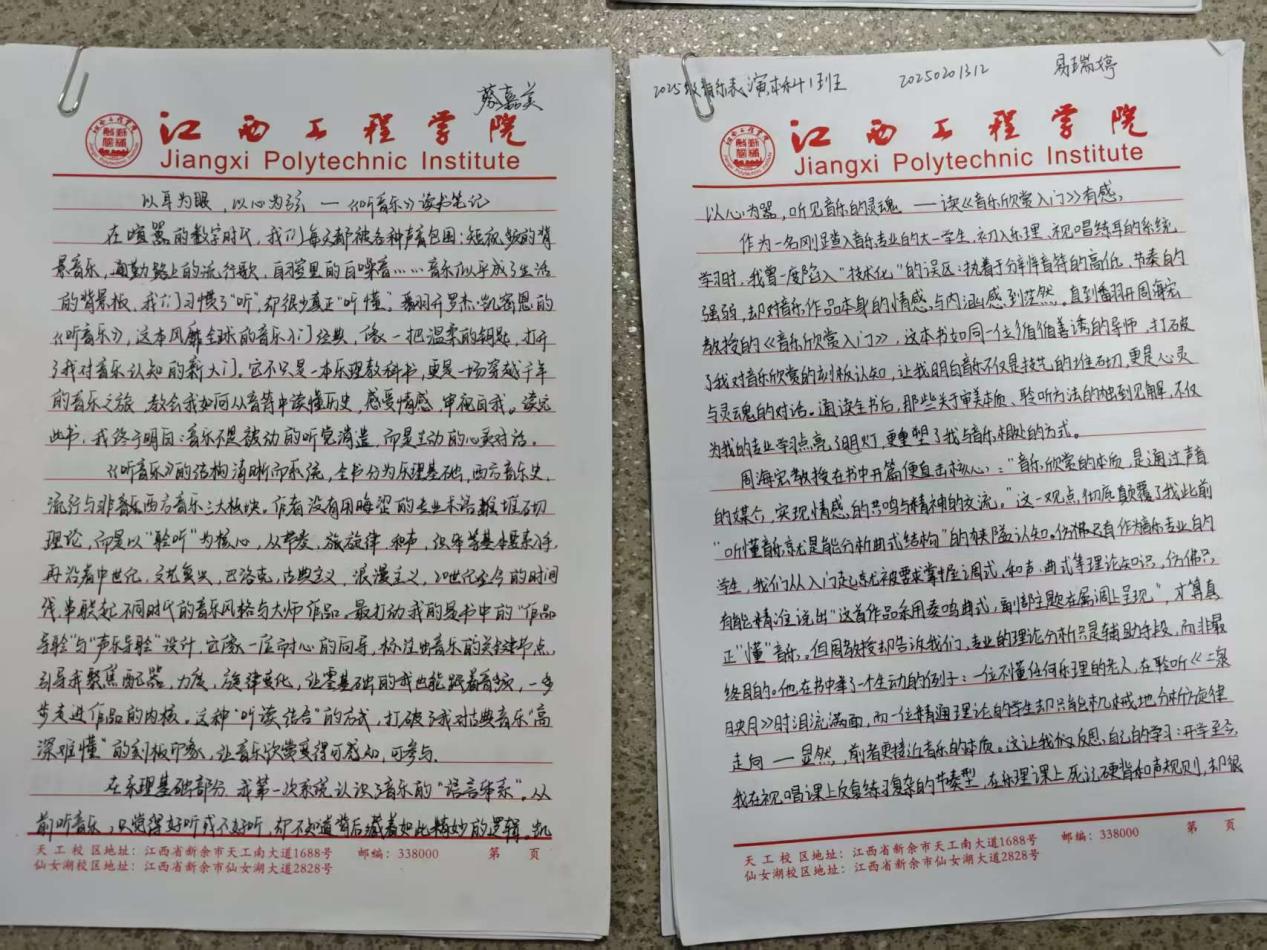 蔡嘉美
江西工程学院
Jiangxi Polytechnic Institute
以耳为眼，以心为弦 —《听音乐》读书笔记
在喧嚣的数字时代，我们每天都被各种声音包围：短视频的背
景音乐，通勤路上的流行歌，自习室里的白噪音……音乐似乎成了生活
的背景板，我们习惯了"听"，却很少真正"听懂"。翻开罗杰·凯密恩的
《听音乐》，这本风靡全球的音乐入门经典，像一把温柔的钥匙，打开
了我对音乐认知的新大门。它不只是一本乐理教科书，更是一场穿越千年
的音乐之旅，教会我如何从音符中读懂历史，感受情感，审视自我。读完
此书，我终于明白：音乐不是被动的听觉消遣，而是主动的心灵对话。
《听音乐》的结构清晰而系统，全书分为乐理基础，西方音乐史，
流行与非西方音乐三大板块。作者没有用晦涩的专业术语堆砌
理论，而是以"聆听"为核心，从节奏，旋律，和声，织体等基本要素入手，
再沿着中世纪，文艺复兴，巴洛克，古典主义，浪漫主义，20世纪至今的时间
线，串联起不同时代的音乐风格与大师作品。最打动我的是书中的"作品
导聆"与"声乐导聆"设计，它像一座耐心的向导，标注出音乐的关键节点，
引导我聚焦配器，力度，旋律变化，让零基础的我也能跟着音频，一步
步走进作品的内核。这种"听读结合"的方式，打破了我对古典音乐"高
深难懂"的刻板印象，让音乐欣赏变得可感知，可参与。
在乐理基础部分，我第一次系统认识了音乐的"语言体系"。从
前听音乐，只觉得好听或不好听，却不知道背后藏着如此精妙的逻辑。凯
天工校区地址：江西省新余市天工南大道1688号 邮编：338000 第 页
仙女湖校区地址：江西省新余市仙女湖大道2828号
2025级音乐表演本科1班 20250201312 易瑞婷
江西工程学院
Jiangxi Polytechnic Institute
以心为器，听见音乐的灵魂 —读《音乐欣赏入门》有感，
作为一名刚踏入音乐专业的大一学生，初入乐理、视唱练耳的系统
学习时，我曾一度陷入"技术化"的误区：执着于分辨音符的高低、节奏的
强弱，却对音乐作品本身的情感，与内涵感到茫然，直到翻开周海宏
教授的《音乐欣赏入门》，这本书如同一位循循善诱的导师，打破
了我对音乐欣赏的刻板认知，让我明白音乐不仅是技艺的堆砌，更是心灵
与灵魂的对话。通读全书后，那些关于审美本质、聆听方法的独到见解，不仅
为我的专业学习点亮了明灯，更重塑了我与音乐相处的方式。
周海宏教授在书中开篇便直击核心："音乐欣赏的本质，是通过声音
的媒介，实现情感的共鸣与精神的交流。"这一观点，彻底颠覆了我此前
"听懂音乐就是能分析曲式结构"的狭隘认知。作为音乐专业的
学生，我们从入门起就被要求掌握调式、和声、曲式等理论知识，仿佛只
有能精准说出"这首作品采用奏鸣曲式，副部主题在属调上呈现"，才算真
正"懂"音乐。但周教授却告诉我们，专业的理论分析只是辅助手段，而非最
终目的。他在书中举了一个生动的例子：一位不懂任何乐理的老人，在聆听《二泉
映月》时泪流满面，而一位精通理论的学生却只能机械地分析旋律
走向 — 显然，前者更接近音乐的本质。这让我反思自己的学习：开学至今，
我在视唱课上反复练习复杂的节奏型，在乐理课上死记硬背和声规则，却很
天工校区地址：江西省新余市天工南大道1688号 邮编：338000 第 页
仙女湖校区地址：江西省新余市仙女湖大道2828号